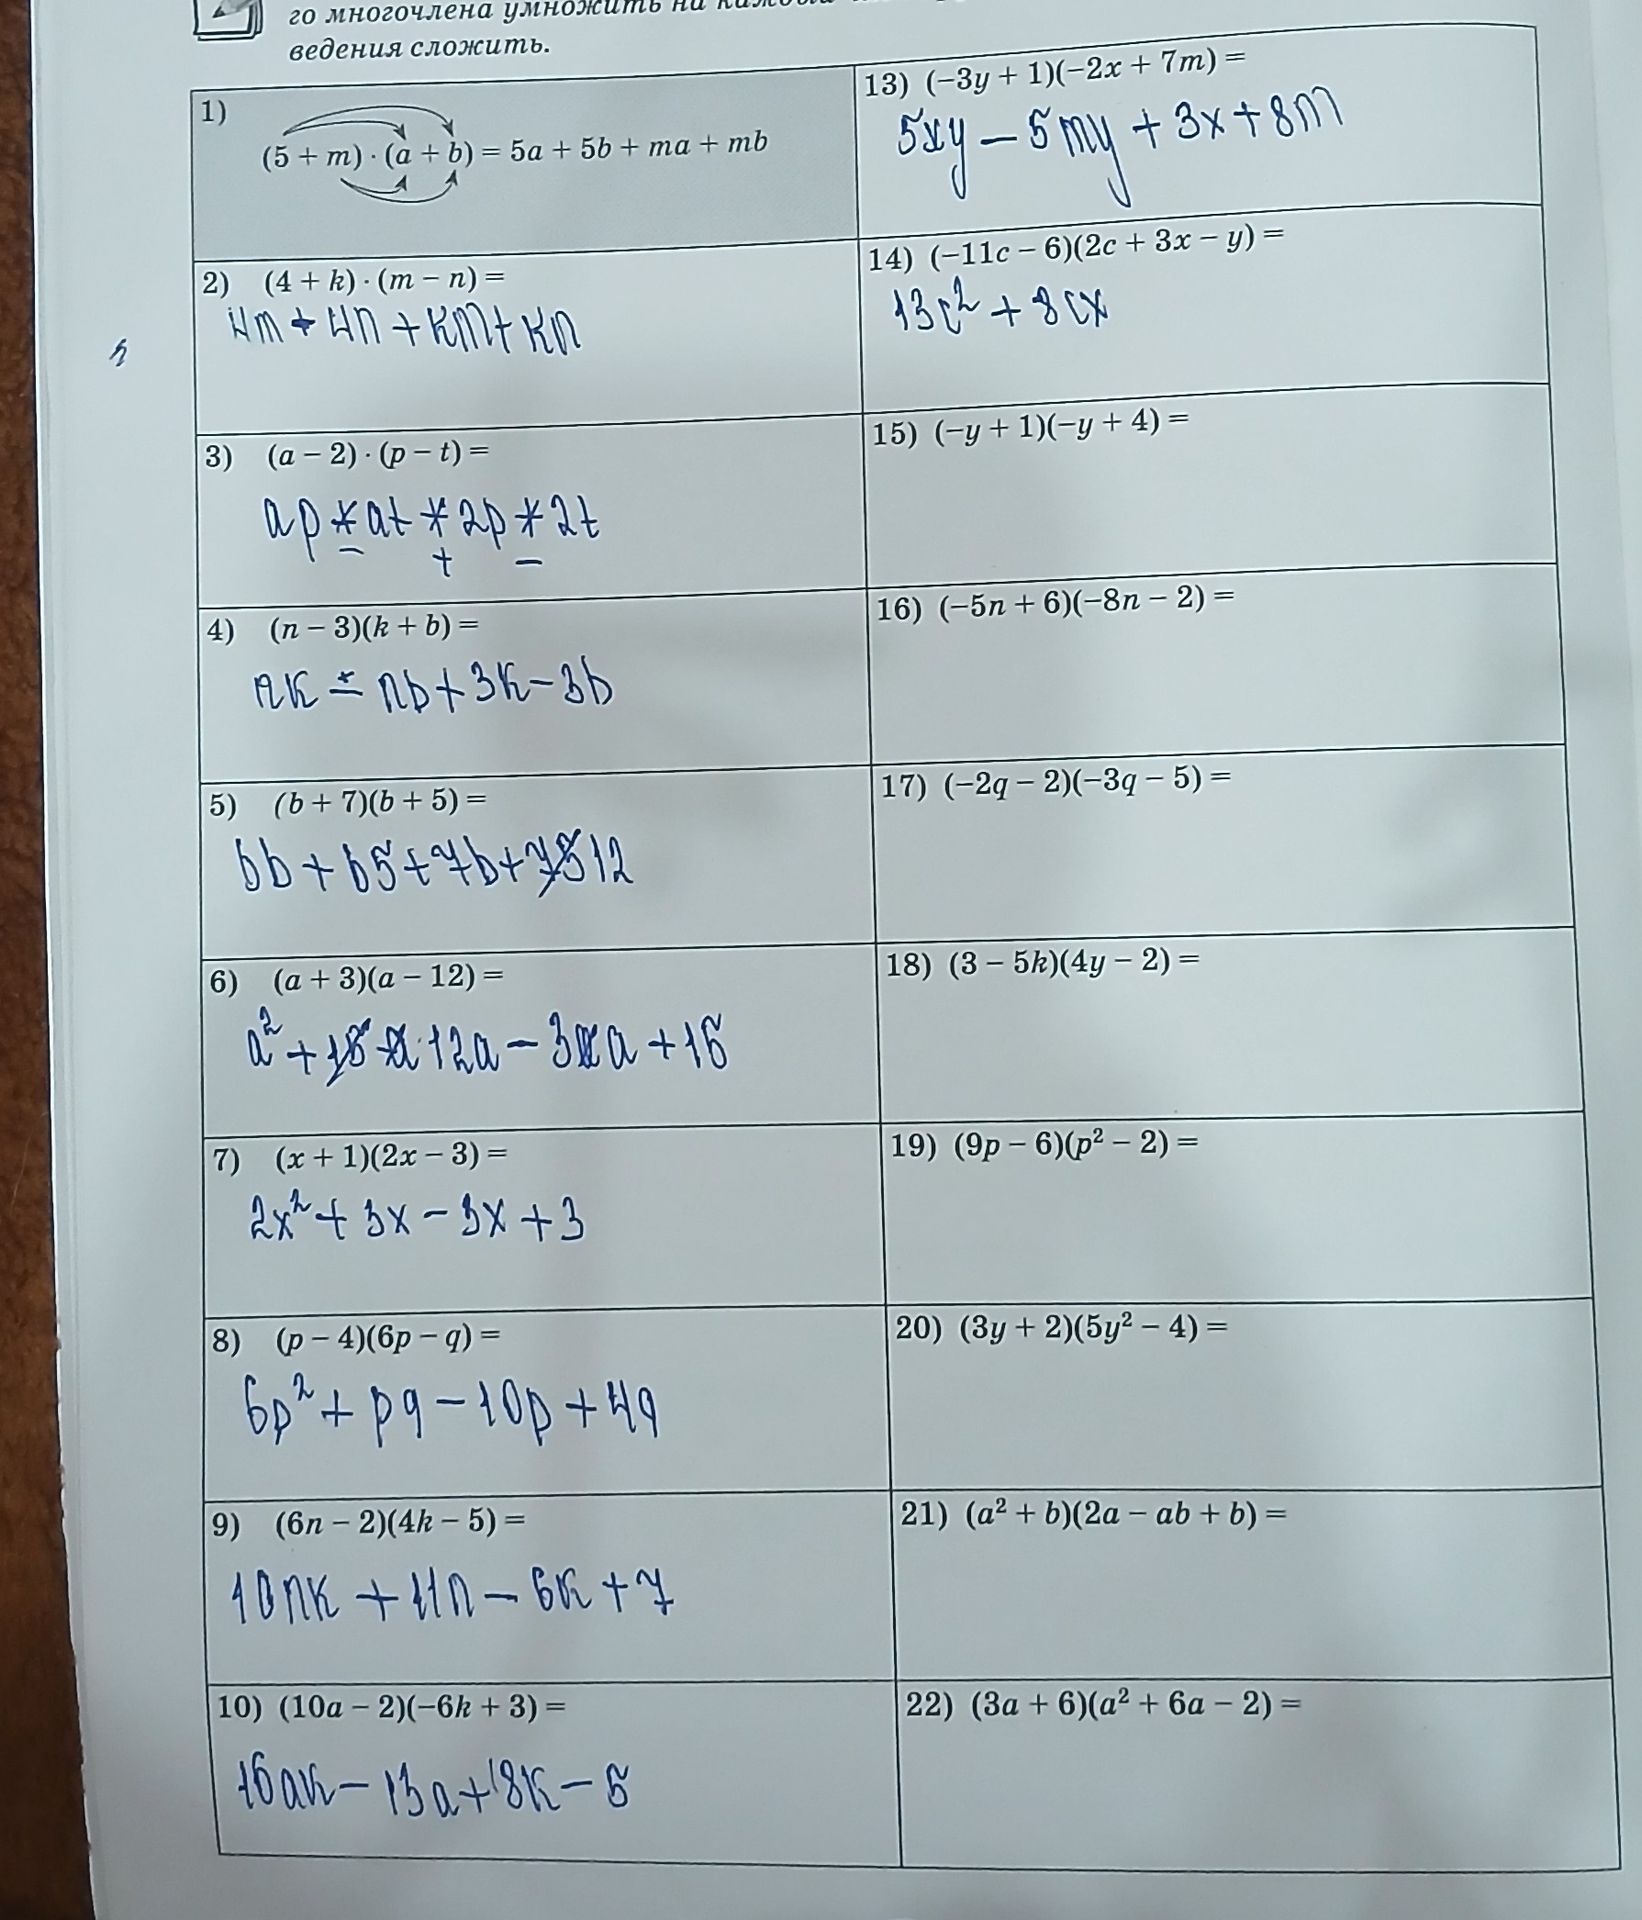 го многочлена умножить на
ведения сложить.
1)
(5 + m) · (a + b) = 5a + 5b + ma + mb
2) (4 + k) · (m − n) =
4m + 4n + km + kn
3) (a − 2) · (p − t) =
ap * at * 2p * 2t
− + −
4) (n − 3)(k + b) =
nk − nb + 3k − 3b
5) (b + 7)(b + 5) =
bb + b5 + 7b + 12
6) (a + 3)(a − 12) =
a² + 12a − 3a + 15
7) (x + 1)(2x − 3) =
2x² + 3x − 3x + 3
8) (p − 4)(6p − q) =
6p² + pq − 10p + 4q
9) (6n − 2)(4k − 5) =
10nk + 11n − 6k + 7
10) (10a − 2)(−6k + 3) =
16ak − 13a + 8k − 5
13) (−3y + 1)(−2x + 7m) =
5xy − 5my + 3x + 8m
14) (−11c − 6)(2c + 3x − y) =
13c² + 8cx
15) (−y + 1)(−y + 4) =
16) (−5n + 6)(−8n − 2) =
17) (−2q − 2)(−3q − 5) =
18) (3 − 5k)(4y − 2) =
19) (9p − 6)(p² − 2) =
20) (3y + 2)(5y² − 4) =
21) (a² + b)(2a − ab + b) =
22) (3a + 6)(a² + 6a − 2) =